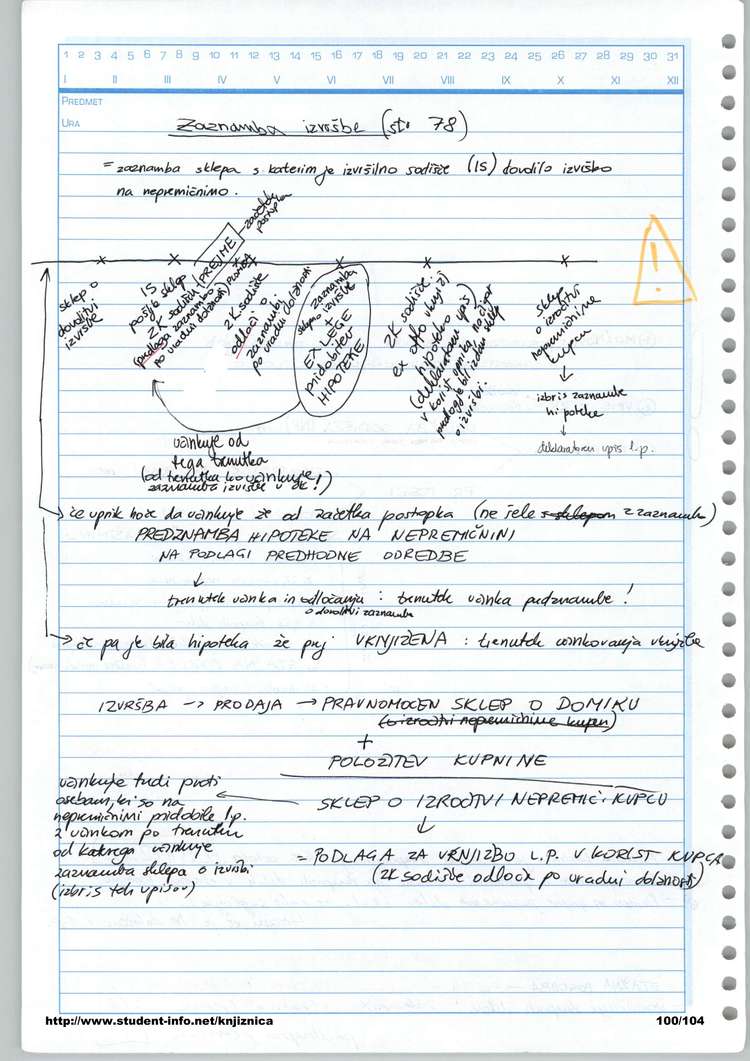 1 2 3 4 5 6 7 8 9 10 11 12 13 14 15 16 17 18 19 20 21 22 23 24 25 26 27 28 29 30 31
I II III IV V VI VII VIII IX X XI XII
PREDMET
URA
Zaznamba izvršbe (str 78)
= zaznamba sklepa s katerim je izvršilno sodišče (IS) dovolilo izvršbo
na nepremičnino.
začetek
postopka
sklep o
dovolitvi
izvršbe
IS
pošlje sklep
ZK sodišču
(podlaga zaznambe
po uradni dolžnosti)
PREJME
ZK sodišče
odloči o
zaznambi
po uradni dolžnosti
zaznamba
sklepa o izvršbi
+
EX LEGE
pridobitev
HIPOTEKE
ZK sodišče
ex offo vknjiži
hipoteko
(deklaratoren vpis)
v korist upnika, na čigar
predlog je bil izdan sklep
o izvršbi.
sklep
o izročitvi
nepremičnine
kupcu
↓
izbris zaznambe
hipoteke
↓
deklaratoren vpis l.p.
učinkuje od
tega trenutka
(od trenutka ko učinkuje
zaznamba izvršbe v ZK!)
→ če upnik hoče da učinkuje že od začetka postopka (ne šele s sklepom z zaznambo)
PREDZNAMBA HIPOTEKE NA NEPREMIČNINI
NA PODLAGI PREDHODNE ODREDBE
↓
trenutek učinka in odločanju : trenutek učinka predznambe !
o dovolitvi zaznambe
→ če pa je bila hipoteka že prej VKNJIŽENA : trenutek učinkovanja vknjižbe
IZVRŠBA → PRODAJA → PRAVNOMOČEN SKLEP O DOMIKU
(o izročitvi nepremičnine kupcu)
+
POLOŽITEV KUPNINE
SKLEP O IZROČITVI NEPREMIČ. KUPCU
↓
= PODLAGA ZA VKNJIŽBO L.P. V KORIST KUPCA
(ZK sodišče odloča po uradni dolžnosti)
učinkuje tudi proti
osebam, ki so na
nepremičnini pridobile l.p.
z učinkom po trenutku
od katerega učinkuje
zaznamba sklepa o izvršbi
(izbris teh vpisov)
!
http://www.student-info.net/knjiznica 100/104